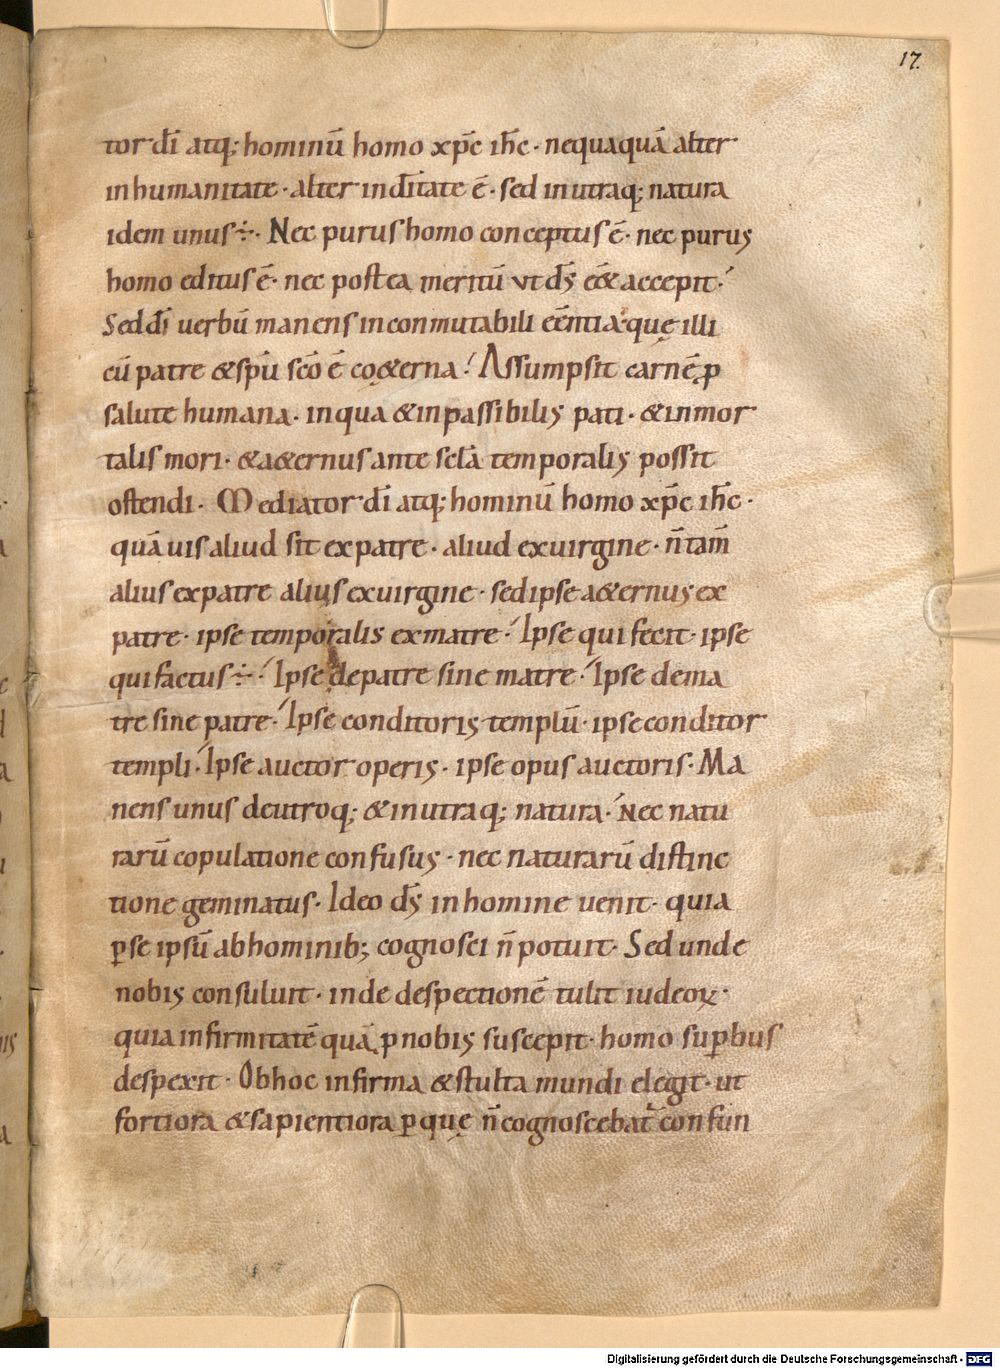 17.
tor dī atq; hominū homo xp̄c ih̄c · nequaquā alter
in humanitate · alter in dītate ē · sed in utraq; natura
idem unus ÷ · Nec purus homo conceptus ē · nec purus
homo editus ē · nec postea meritū ut ds̄ eēt accepit ·
Sed dī uerbū manens inconmutabili eēntia · quę illi
cū patre & spū scō ē co&erna · Assumpsit carnē p̱
salute humana · in qua & inpassibilis pati · & inmor
talis mori · & a&ernus ante sclā temporalis possit
ostendi · Mediator dī atq; hominū homo xp̄c ih̄c ·
quāuis aliud sit ex patre · aliud ex uirgine · n̄ tam̄
alius ex patre alius ex uirgine · sed ipse a&ernus ex
patre · ipse temporalis ex matre · Ipse qui fecit · ipse
qui factus ÷ · Ipse de patre sine matre · Ipse de ma
tre sine patre · Ipse conditoris templū · ipse conditor
templi · Ipse auctor operis · ipse opus auctoris · Ma
nens unus de utroq; & in utraq; natura · Nec natu
rarū copulatione confusus · nec naturarū distinc
tione geminatus · Ideo ds̄ in homine uenit · quia
ꝑ se ipsū ab hominib; cognosci n̄ potuit · Sed unde
nobis consuluit · inde despectionē tulit iudeoꝝ ·
quia infirmitatē quā ꝓ nobis suscepit · homo suꝑbus
despexit · Ob hoc infirma & stulta mundi elegit · ut
fortiora & sapientiora ꝑ quę n̄ cognoscebat᷑ confun
Digitalisierung gefördert durch die Deutsche Forschungsgemeinschaft - DFG